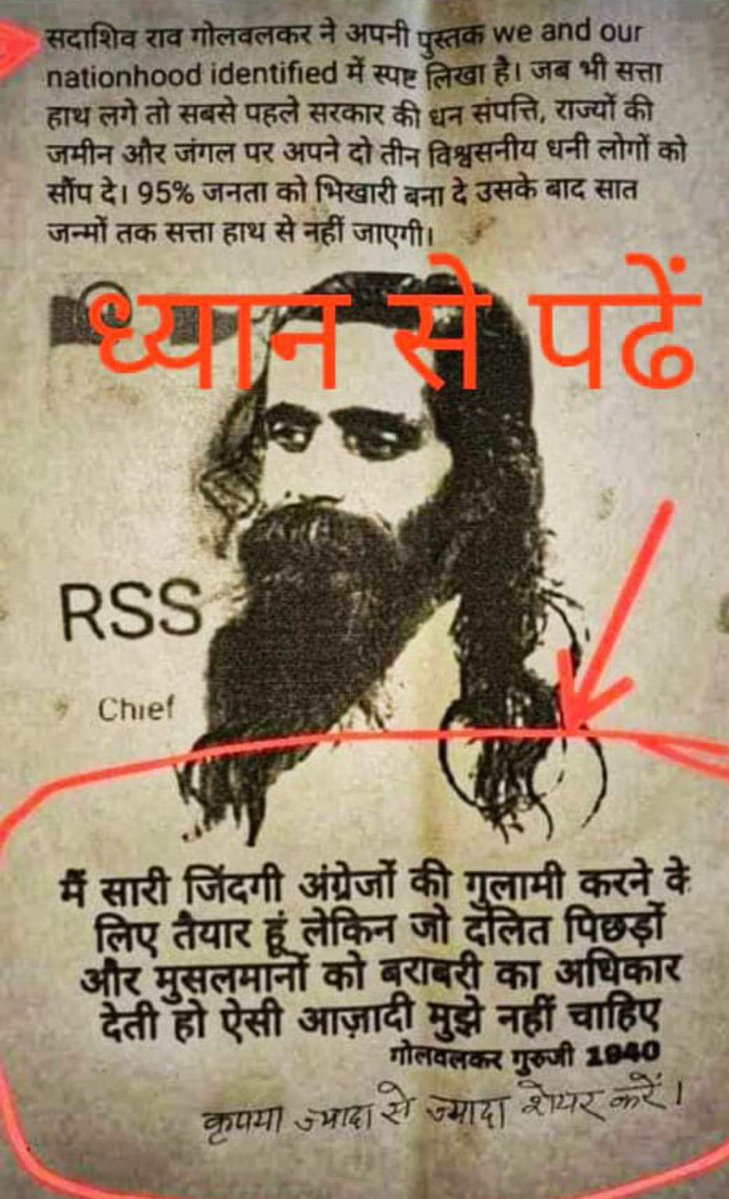 सदाशिव राव गोलवलकर ने अपनी पुस्तक we and our
nationhood identified में स्पष्ट लिखा है। जब भी सत्ता
हाथ लगे तो सबसे पहले सरकार की धन संपत्ति, राज्यों की
जमीन और जंगल पर अपने दो तीन विश्वसनीय धनी लोगों को
सौंप दे। 95% जनता को भिखारी बना दे उसके बाद सात
जन्मों तक सत्ता हाथ से नहीं जाएगी।
ध्यान से पढें
RSS
Chief
मैं सारी जिंदगी अंग्रेजों की गुलामी करने के
लिए तैयार हूं लेकिन जो दलित पिछड़ों
और मुसलमानों को बराबरी का अधिकार
देती हो ऐसी आज़ादी मुझे नहीं चाहिए
गोलवलकर गुरुजी 1940
कृपया ज्यादा से ज्यादा शेयर करें।